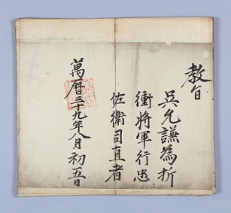 教旨
吳允謙為折
衝將軍行忠
佐衛司直者
萬曆三十九年八月初五日